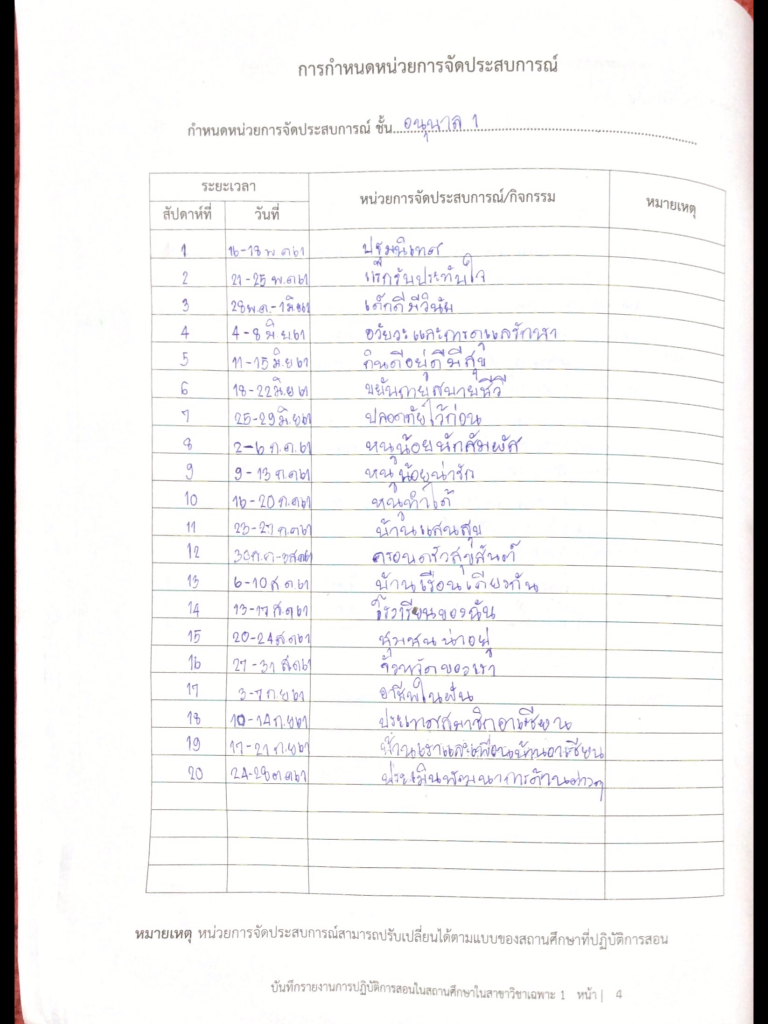 การกำหนดหน่วยการจัดประสบการณ์
กำหนดหน่วยการจัดประสบการณ์ ชั้น อนุบาล 1
ระยะเวลา หน่วยการจัดประสบการณ์/กิจกรรม หมายเหตุ
สัปดาห์ที่ วันที่
1 16-18 พ.ค 61 ปฐมนิเทศ
2 21-25 พ.ค 61 แรกรับประทับใจ
3 28 พ.ค.-1 มิย 61 เด็กดีมีวินัย
4 4-8 มิย 61 อวัยวะและการดูแลรักษา
5 11-15 มิย 61 กินดีอยู่ดีมีสุข
6 18-22 มิย 61 ขยับกายสบายชีวี
7 25-29 มิย 61 ปลอดภัยไว้ก่อน
8 2-6 ก.ค. 61 หนูน้อยนักสัมผัส
9 9-13 ก.ค 61 หนูน้อยน่ารัก
10 16-20 ก.ค 61 หนูทำได้
11 23-27 ก.ค 61 บ้านแสนสุข
12 30 ก.ค-3 สค 61 ครอบครัวสุขสันต์
13 6-10 ส.ค 61 บ้านเรือนเคียงกัน
14 13-17 ส.ค 61 โรงเรียนของฉัน
15 20-24 ส.ค 61 ชุมชนน่าอยู่
16 27-31 ส.ค 61 จังหวัดของเรา
17 3-7 ก.ย 61 อาชีพในฝัน
18 10-14 ก.ย 61 ประเทศสมาชิกอาเซียน
19 17-21 ก.ย 61 บ้านเราและเพื่อนบ้านอาเซียน
20 24-28 ต.ค 61 ประเมินพัฒนาการด้านต่างๆ
หมายเหตุ หน่วยการจัดประสบการณ์สามารถปรับเปลี่ยนได้ตามแบบของสถานศึกษาที่ปฏิบัติการสอน
บันทึกรายงานการปฏิบัติการสอนในสถานศึกษาในสาขาวิชาเฉพาะ 1 หน้า | 4